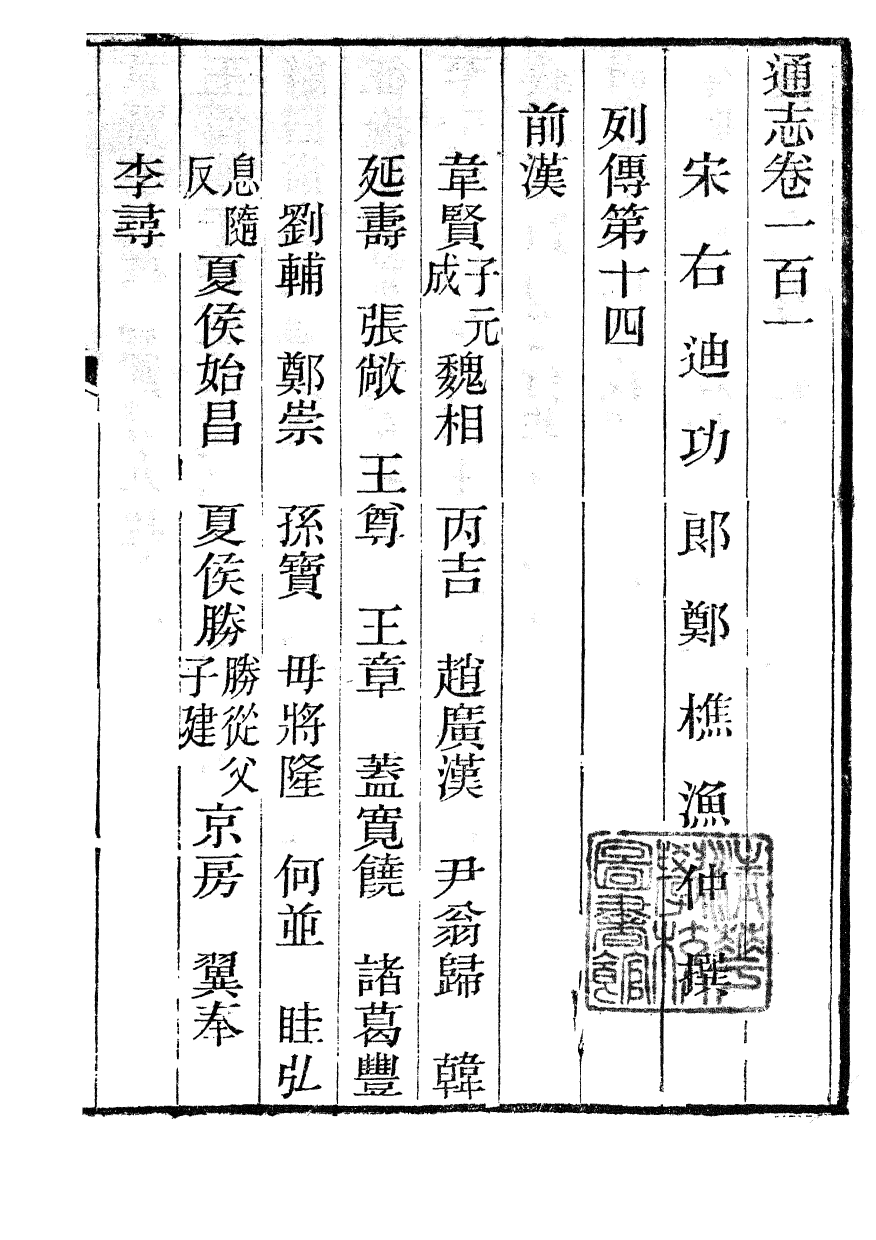 通志卷一百一
宋右迪功郎鄭樵漁仲撰
列傳第十四
前漢
韋賢子元成 魏相 丙吉 趙廣漢 尹翁歸 韓
延壽 張敞 王尊 王章 蓋寬饒 諸葛豐
劉輔 鄭崇 孫寶 毋將隆 何並 眭弘
息隨反 夏侯始昌 夏侯勝勝從父子建 京房 翼奉
李尋
清華學校圖書館